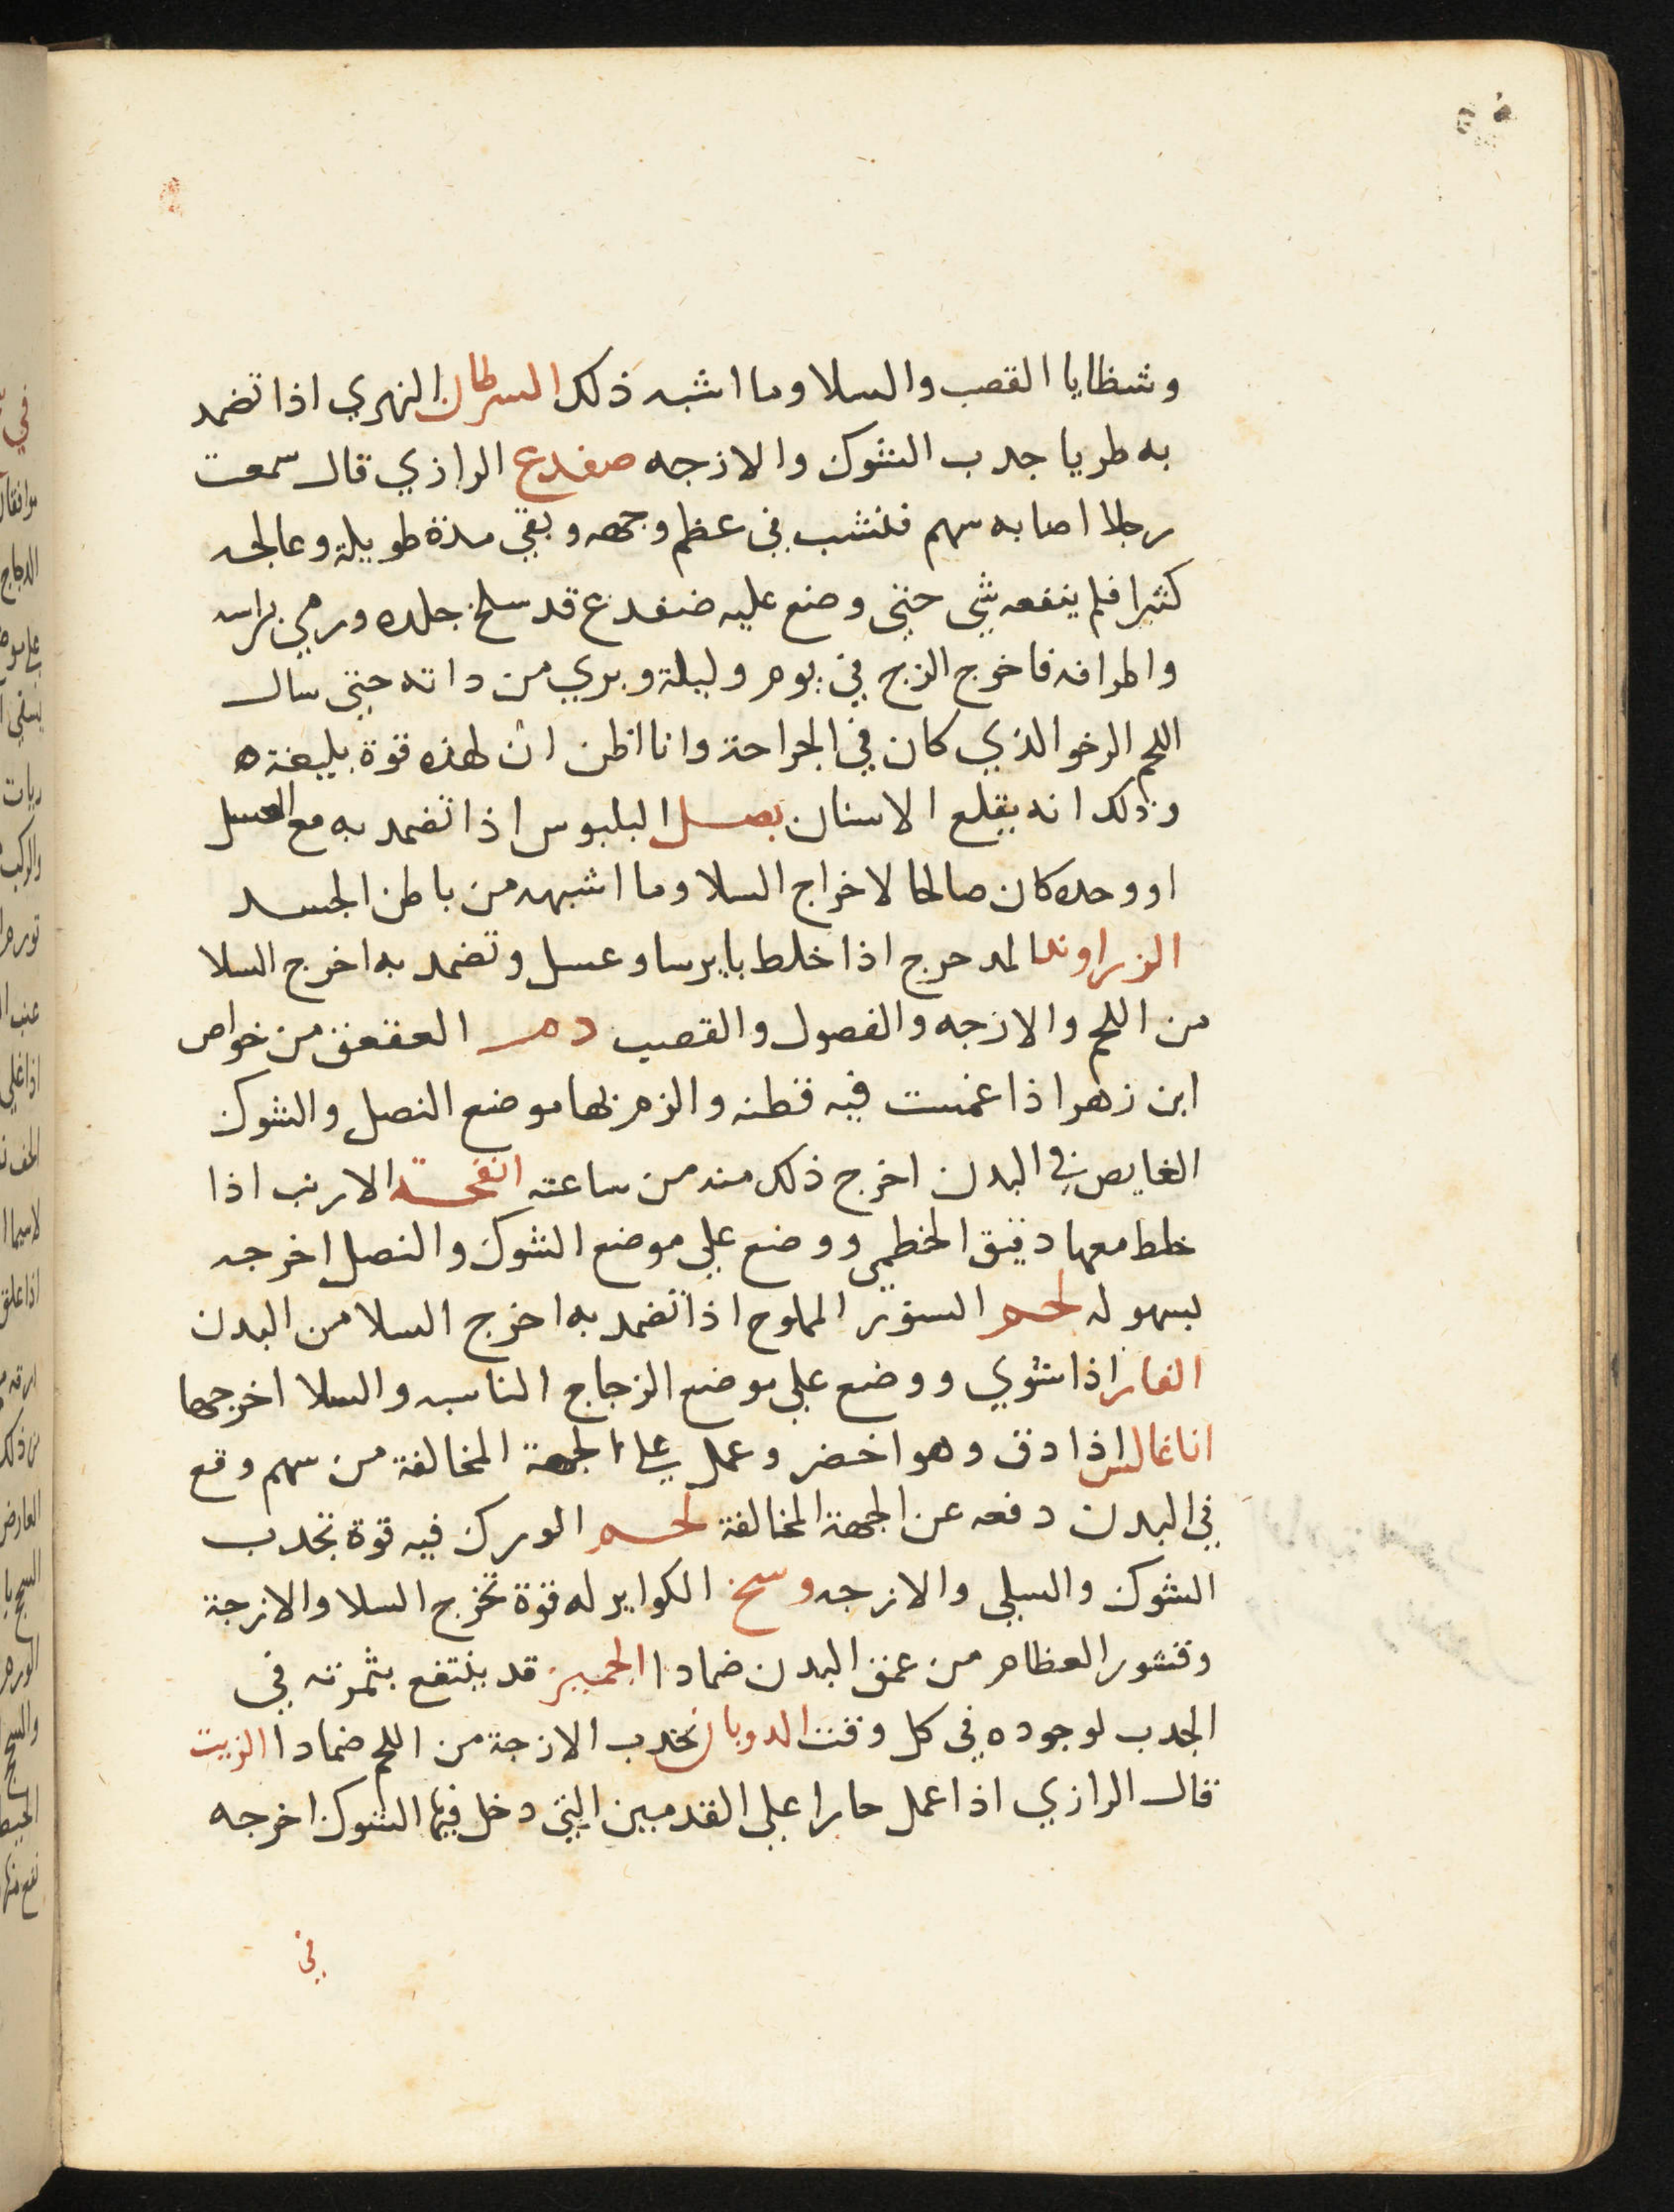 وشظايا القصب والسلا وما اشبه ذلك السرطان النهري اذا تضمد
به طريا جدب الشوك والازجه ضفدع الرازي قال سمعت
رجلا اصابه سهم فنشب في عظم وجهه وبقي مدة طويلة وعالجه
كثيرا فلم ينفعه شي حتى وضع عليه ضفدع قد سلخ جلده ورمي براسه
واطرافه فاخرج الزج في يوم وليلة وبري من داته حتى سال
اللحم الرخو الذي كان في الجراحة وانا اظن ان لهذه قوة بليغة ه
وذلك انه يقلع الاسنان بصل البلبوس اذا تضمد به مع العسل
او وحده كان صالحا لاخراج السلا وما اشبهه من باطن الجسد
الزراوند المدحرج اذا خلط بايرسا وعسل وتضمد به اخرج السلا
من اللحم والازجه والفصول والقصب دم العقعق من خواص
ابن زهر اذا غمست فيه قطنه والزم بها موضع النصل والشوك
الغايص في البدن اخرج ذلك منه من ساعته انفحة الارنب اذا
خلط معها دقيق الخطمي ووضع علي موضع الشوك والنصل اخرجه
بسهوله لحم السنور المملوح اذا تضمد به اخرج السلا من البدن
الفار اذا شوي ووضع علي موضع الزجاج الناسبه والسلا اخرجها
اناغالس اذا دق وهو اخضر وعمل علي الجهة المخالفة من سهم وقع
في البدن دفعه عن الجهة المخالفة لحم الورك فيه قوة تجدب
الشوك والسلي والازجه وسخ الكواير له قوة تخرج السلا والازجة
وقشور العظام من عمق البدن ضمادا الجميز قد ينتفع بثمرته في
الجدب لوجوده في كل وقت الدوبان تجدب الازجة من اللحم ضمادا الزيت
قال الرازي اذا عمل حارا علي القدمين التي دخل فيها الشوك اخرجه
في